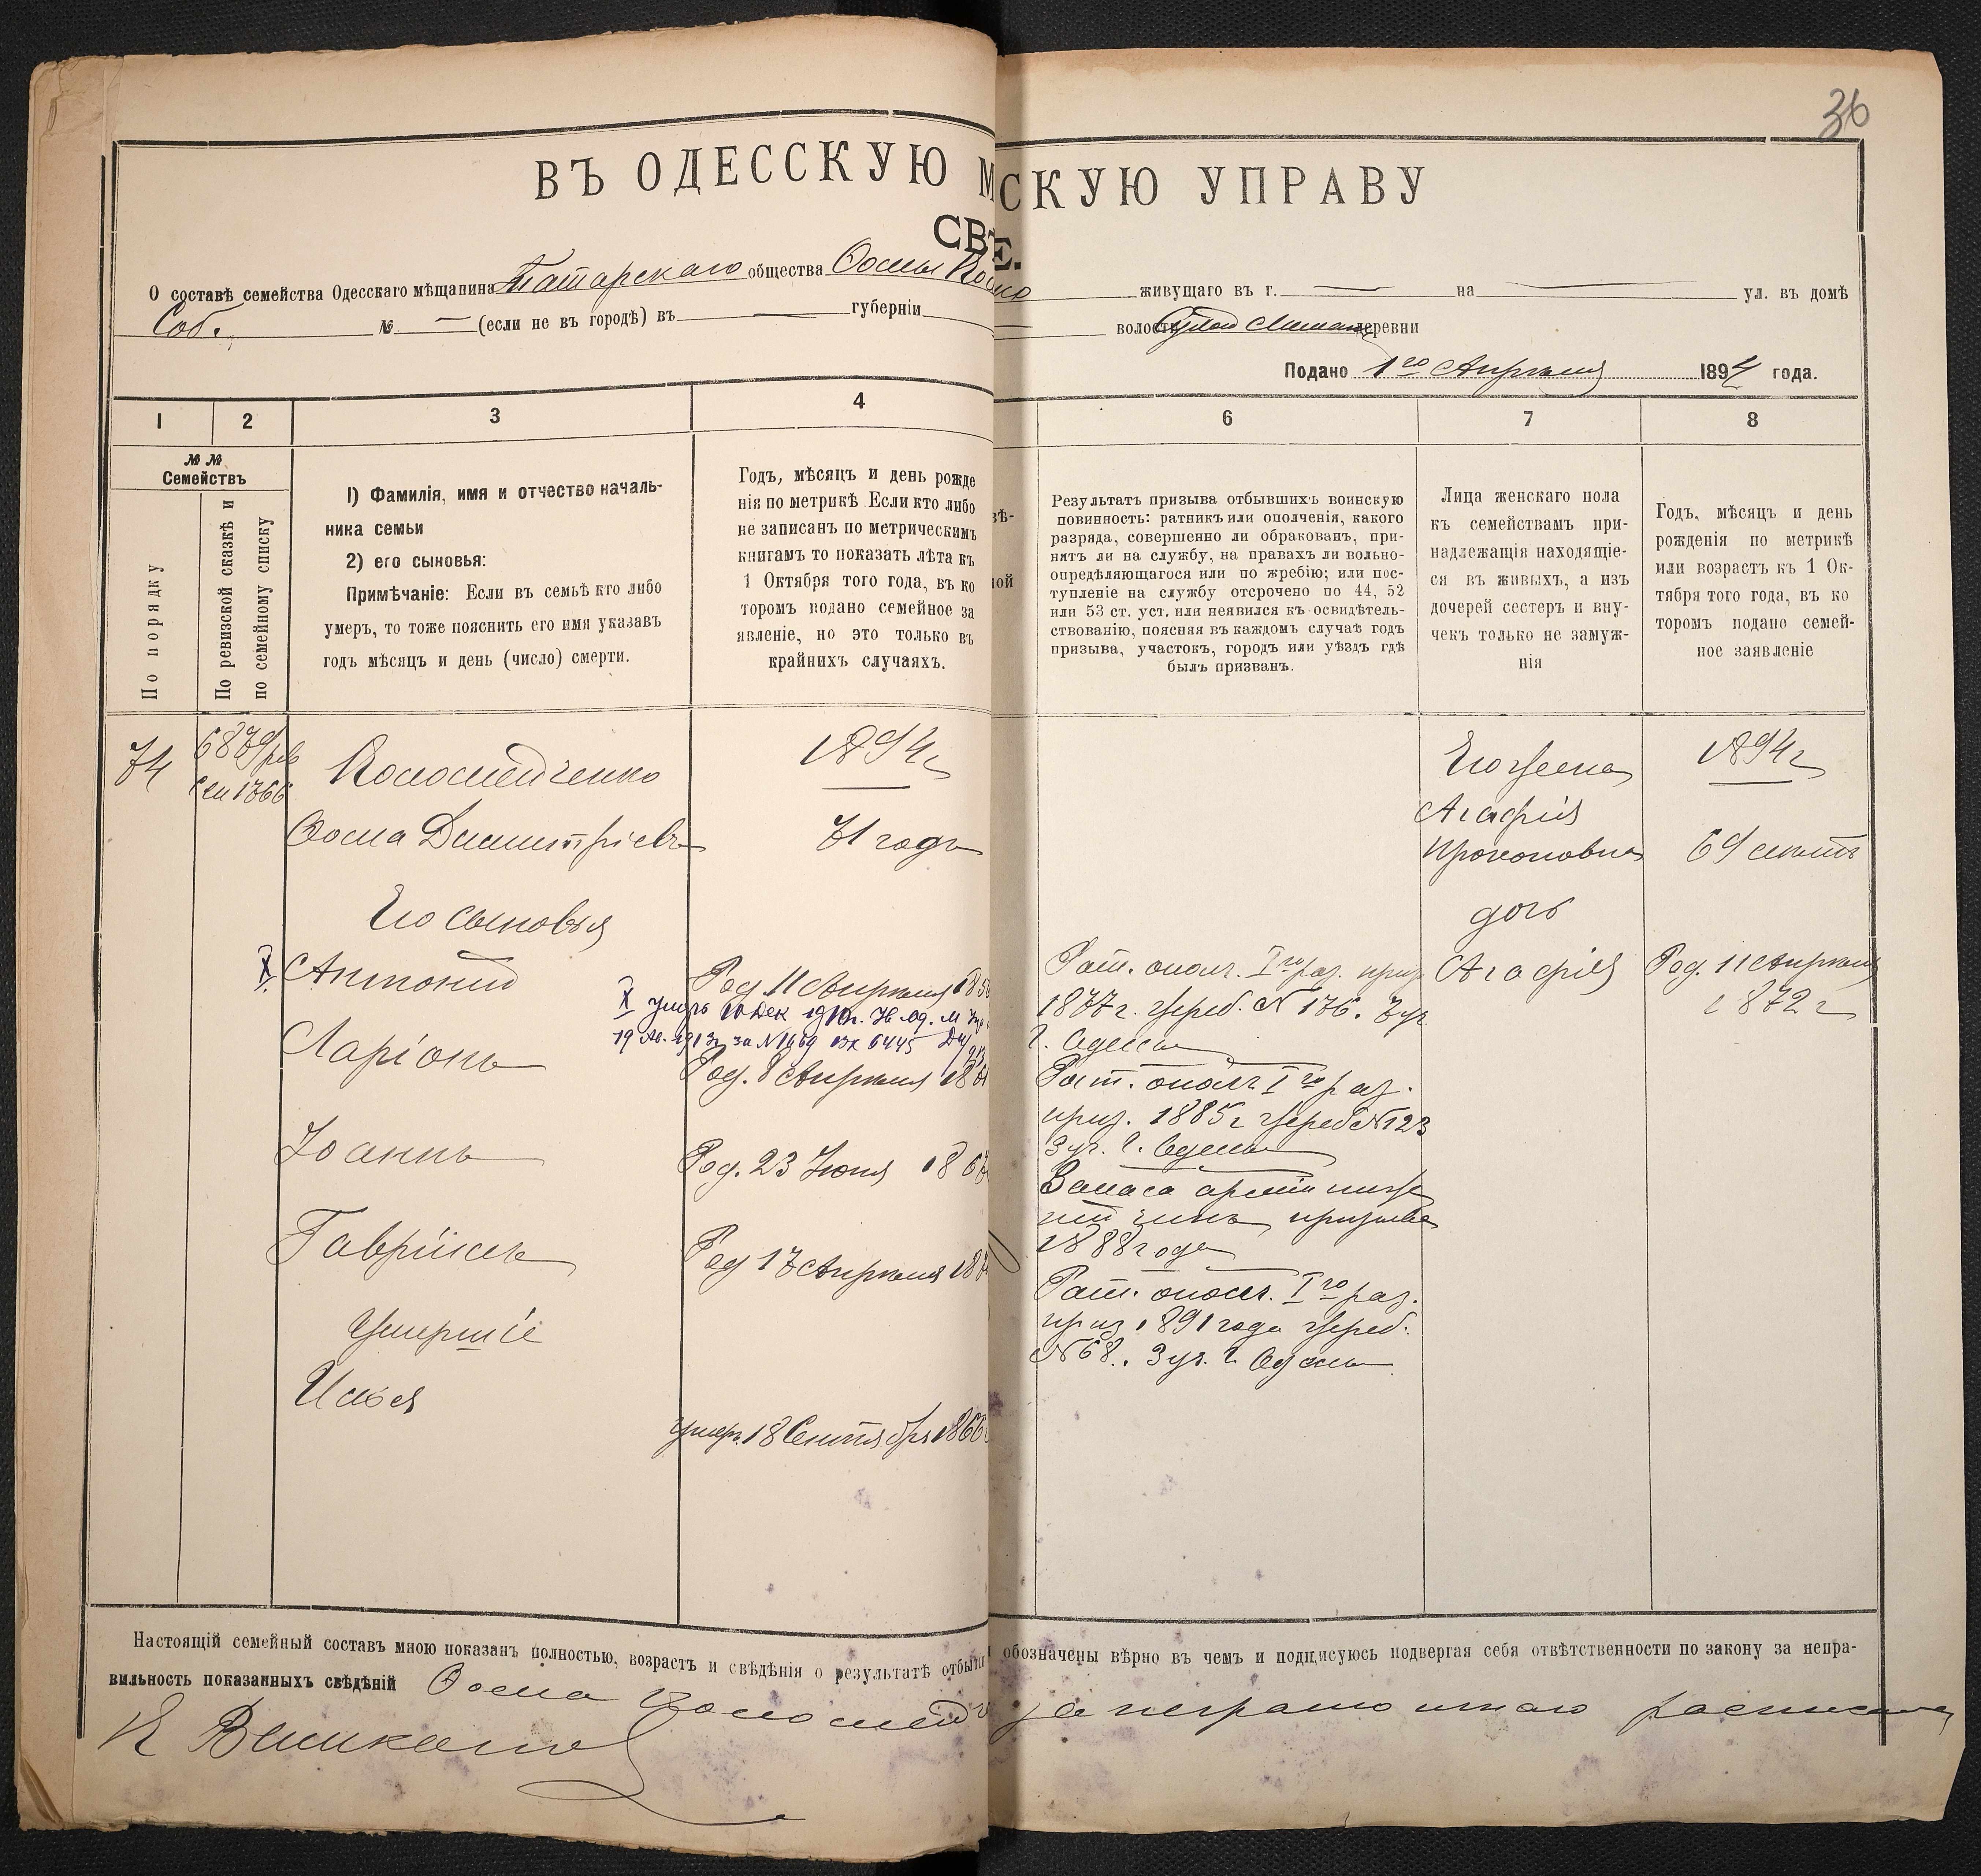 36
ВЪ ОДЕССКУЮ М
СКУЮ УПРАВУ
СВѢ
Е.
О составѣ семейства Одесскаго мѣщанина Татарскаго общества Ѳомы
живущаго въ г. — на — ул. въ домѣ
Соб. № — (если не въ городѣ) въ — губерніи
волости деревни
Подано 1го Апрѣля 1894 года.
1 2 3 4
6 7 8
№ №
Семействъ
По порядку
По ревизской сказкѣ и
по семейному списку
1) Фамилія, имя и отчество началь-
ника семьи
2) его сыновья:
Примѣчаніе: Если въ семьѣ кто либо
умеръ, то тоже пояснить его имя указавъ
годъ мѣсяцъ и день (число) смерти.
Годъ, мѣсяцъ и день рожде
нія по метрикѣ Если кто либо
не записанъ по метрическимъ
книгамъ то показать лѣта къ
1 Октября того года, въ ко
торомъ подано семейное за
явленіе, но это только въ
крайнихъ случаяхъ.
вѣ-
ной
Результатъ призыва отбывшихъ воинскую
повинность: ратникъ или ополченія, какого
разряда, совершенно ли обракованъ, при-
нятъ ли на службу, на правахъ ли вольно-
опредѣляющагося или по жребію; или пос-
тупленіе на службу отсрочено по 44, 52
или 53 ст. уст. или неявился къ освидѣтель-
ствованію, поясняя въ каждомъ случаѣ годъ
призыва, участокъ, городъ или уѣздъ гдѣ
былъ призванъ.
Лица женскаго пола
къ семействамъ при-
надлежащія находящіе-
ся въ живыхъ, а изъ
дочерей сестеръ и вну-
чекъ только не замуж-
нія
Годъ, мѣсяцъ и день
рожденія по метрикѣ
или возрастъ къ 1 Ок-
тября того года, въ ко
торомъ подано семей-
ное заявленіе
74
6879 рев
сем 1366
Коломейченко
1894 г
Ѳома Димитріевъ
71 годъ
Его сыновья
Антоній
Род. 11 Апрѣля 185
X умеръ 10 Дек 1910г.
19 Ав. 1913г за №1669 вх 6445
Ларіонъ
Род. 8 Апрѣля 186
Іоаннъ
Род. 23 Іюня 1867
Гавріилъ
Род 17 Апрѣля 187
Умершіе
Илья
умеръ 18 Сентября 1866
Рат. опол. Iго раз. приз
1877 г. жреб. № 176. 3 уч.
г. Одессы
Рат. опол. Iго раз.
приз. 1885 г жреб №123
3 уч. г. Одессы
Запаса арміи ниж
ній чинъ призыва
1888 года
Рат. опол. Iго раз.
приз 1891 года жреб.
№68. 3 уч. г. Одессы
Его жена
Агафія
Прокоповна
дочь
Агафія
1894 г
69 лѣтъ
Род. 11 Апрѣля
1872 г
Настоящій семейный составъ мною показанъ полностью, возрастъ и свѣдѣнія о результатѣ отбытія
обозначены вѣрно въ чемъ и подписуюсь подвергая себя отвѣтственности по закону за непра-
вильность показанныхъ свѣдѣній Ѳома Коломейч
за неграмотнаго